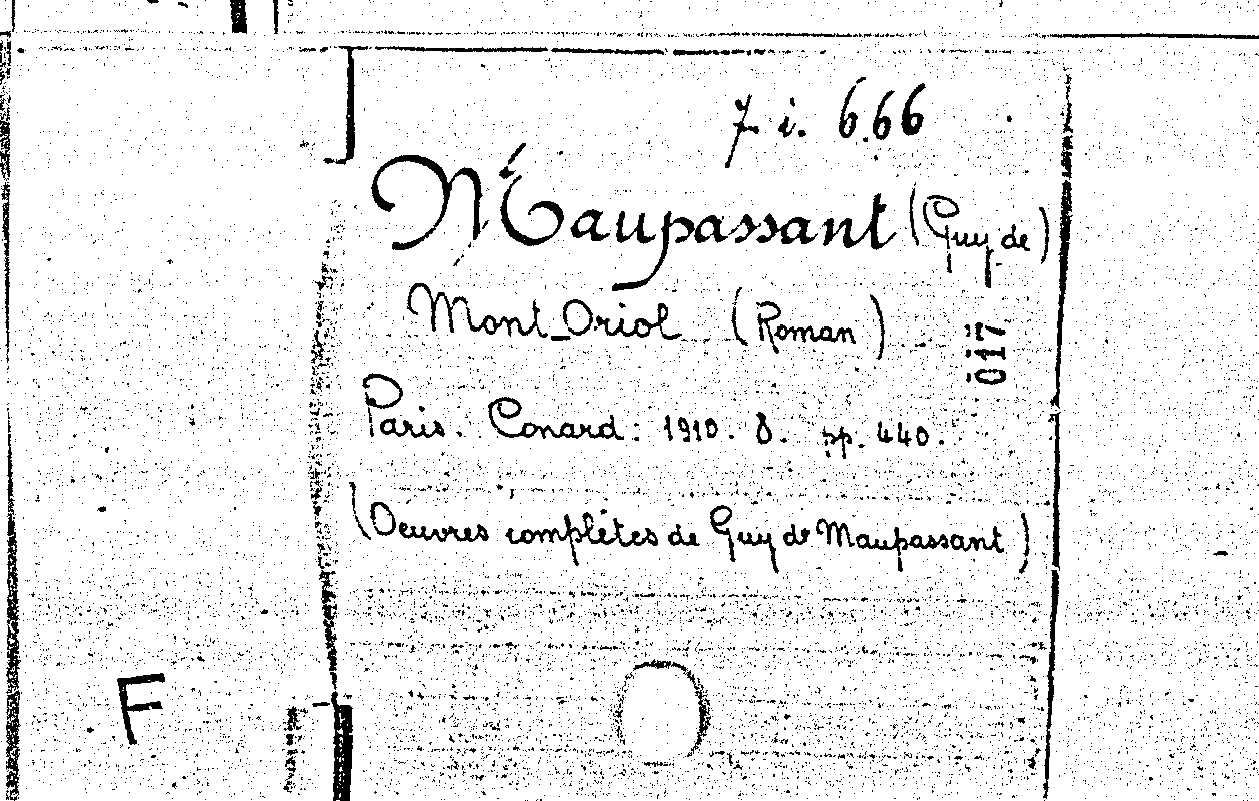 7. i. 666
Maupassant (Guy de)
Mont-Oriol (Roman)
017
Paris. Conard: 1910. 8. pp. 440.
(Oeuvres complètes de Guy de Maupassant)
F